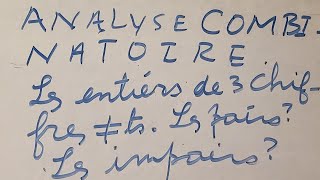 ANALYSE COMBI.
NATOIRE
Les entiérs de 3 chif-
fres ≠ts. Les pairs?
Les impairs?